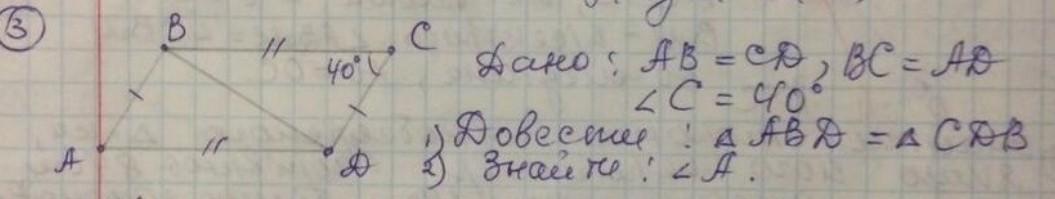 3
B
C
40°
A
D
Дано: AB = CD, BC = AD
∠C = 40°
1) Довести: △ABD = △CDB
2) Знайти: ∠A.